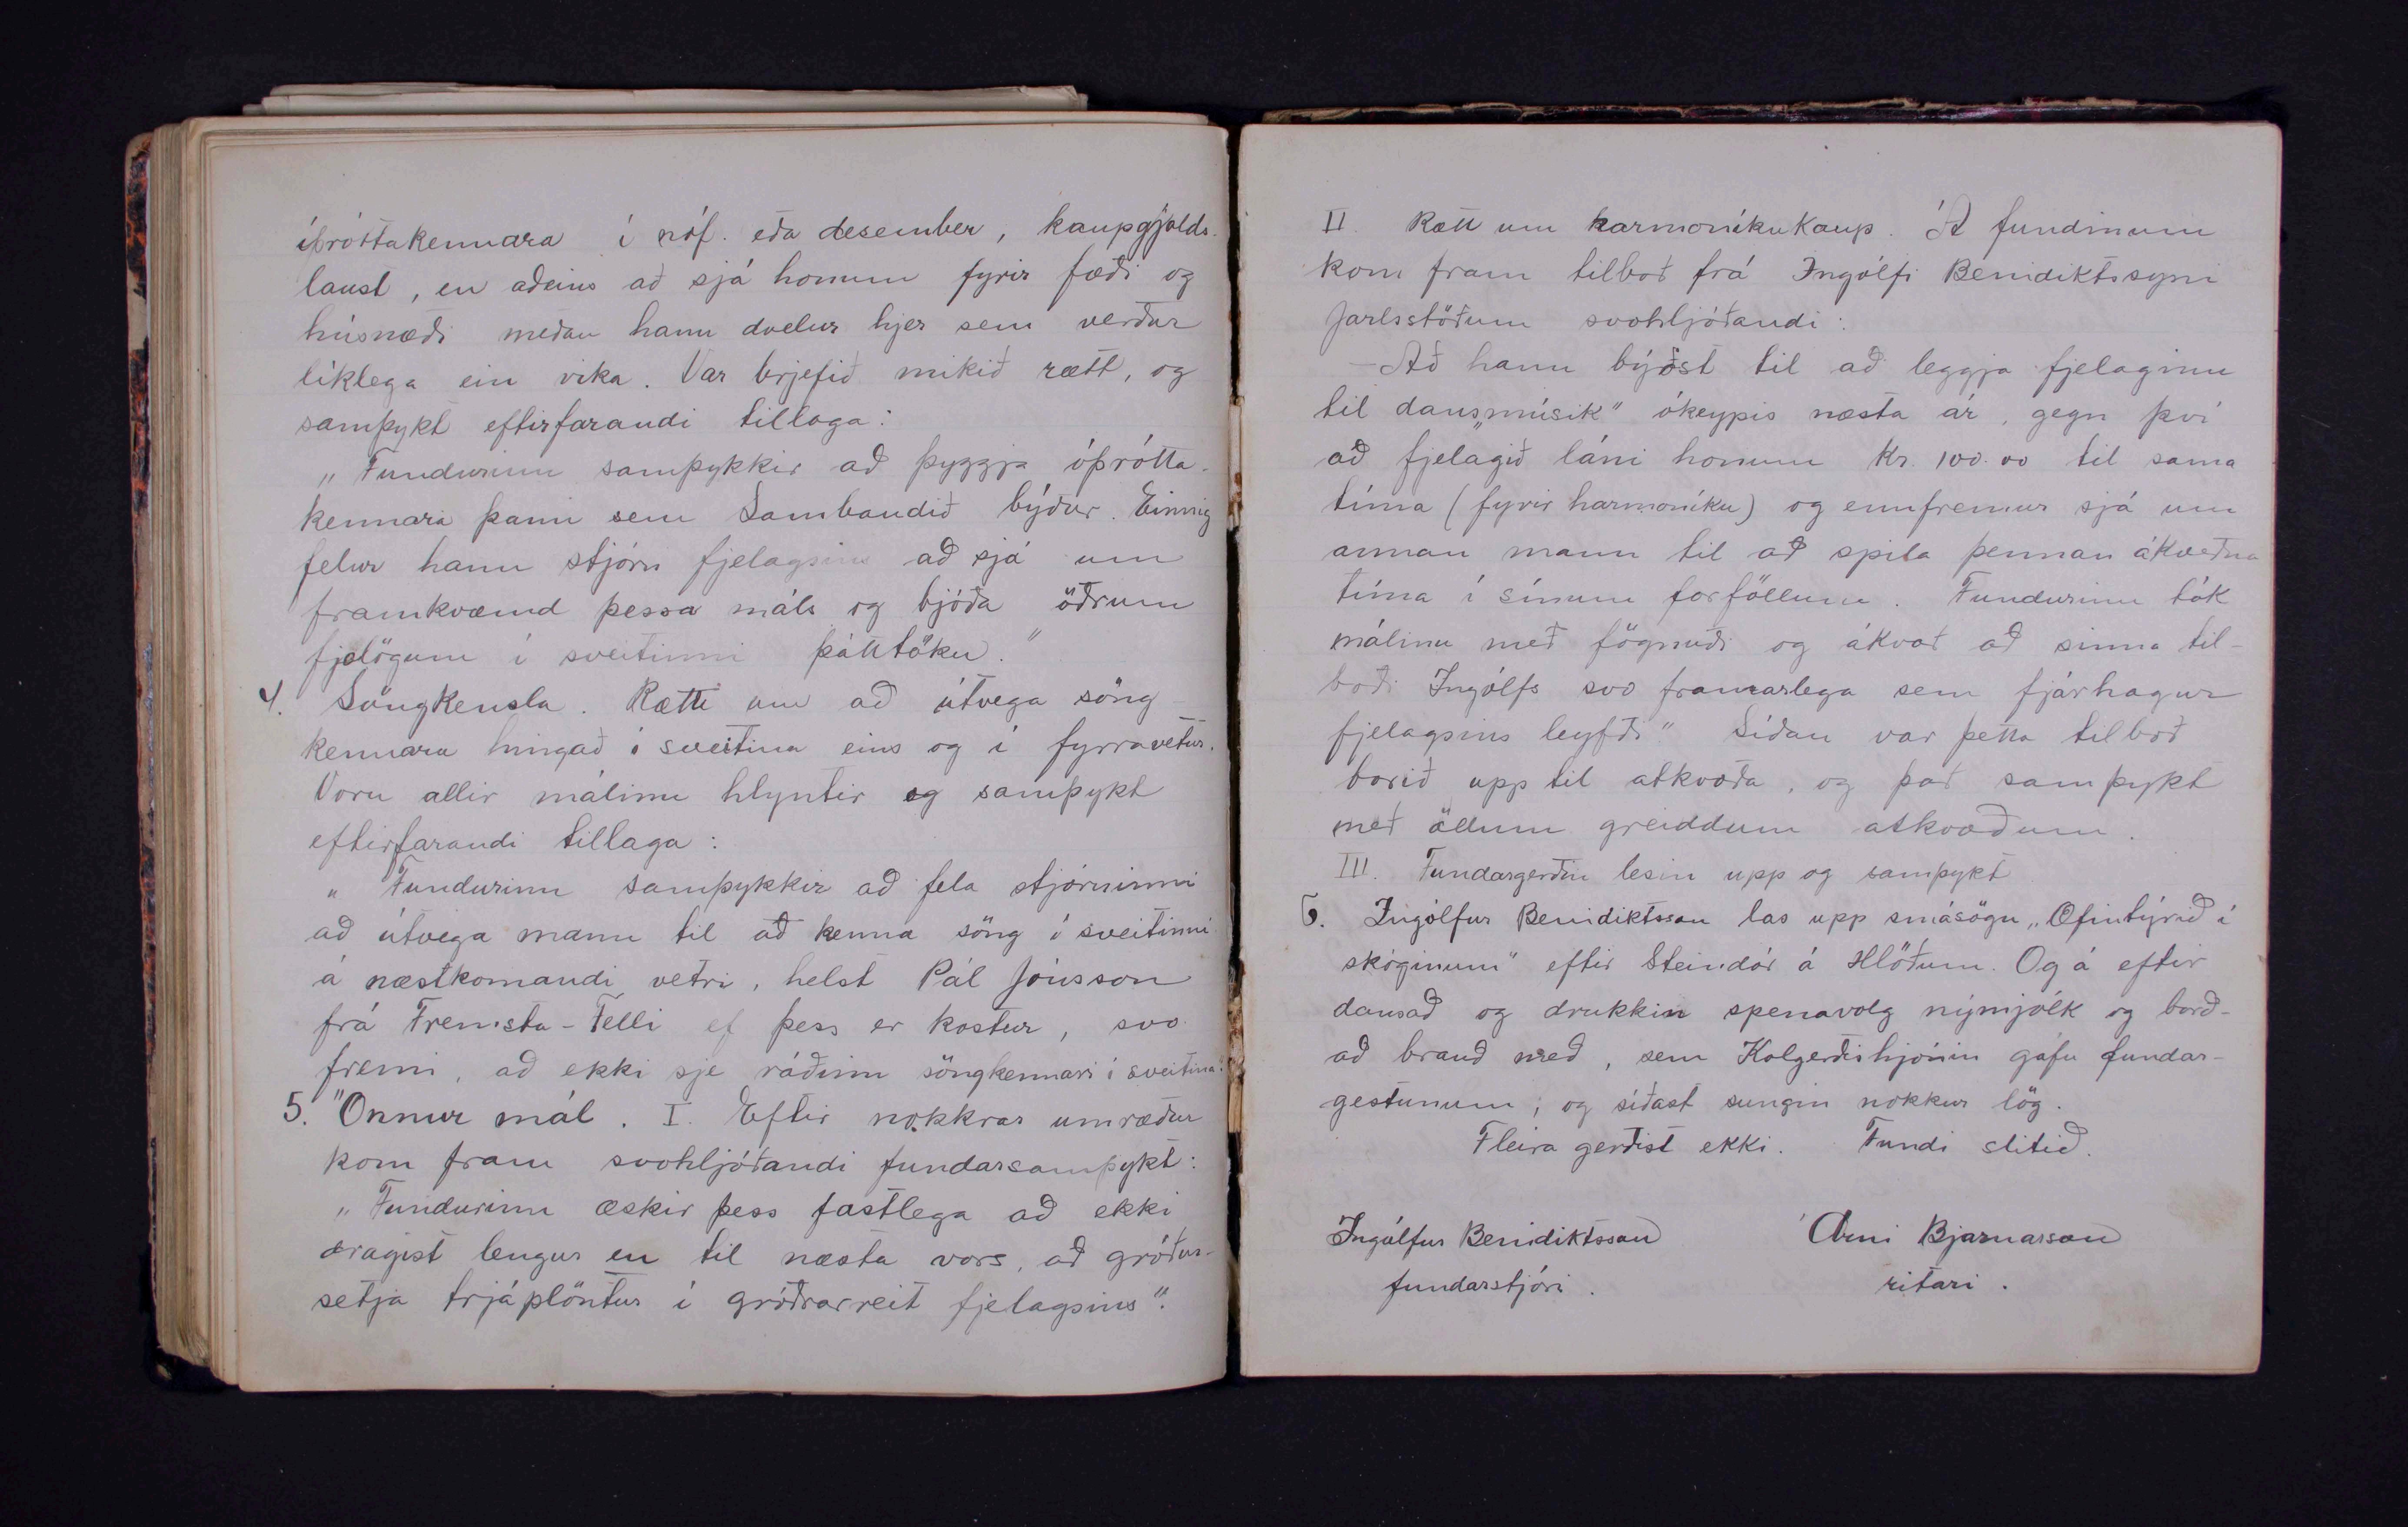 íþróttakennara í nóf. eða desember, kaupgjalds-
laust, en aðeins að sjá honum fyrir fæði og
húsnæði meðan hann dvelur hjer sem verður
líklega ein vika. Var brjefið mikið rætt, og
samþykt eftirfarandi tillaga:
„Fundurinn samþykkir að þyggja íþrótta-
kennara þann sem Sambandið býður. Einnig
felur hann stjórn fjelagsins að sjá um
framkvæmd þessa máls og bjóða öðrum
fjelögum í sveitinni þátttöku."
4. Söngkensla. Rætt um að útvega söng-
kennara hingað í sveitina eins og í fyrravetur.
Voru allir málinu hlyntir og samþykt
eftirfarandi tillaga:
„Fundurinn samþykkir að fela stjórninni
að útvega mann til að kenna söng í sveitinni
á næstkomandi vetri, helst Pál Jónsson
frá Fremsta-Felli ef þess er kostur, svo
fremi, að ekki sje ráðinn söngkennari í sveitina."
5. Önnur mál. I. Eftir nokkrar umræður
kom fram svohljóðandi fundarsamþykt:
„Fundurinn æskir þess fastlega að ekki
dragist lengur en til næsta vors, að gróður-
setja trjáplöntur í gróðrarreit fjelagsins".
II. Rætt um harmoníkukaup. Á fundinum
kom fram tilboð frá Ingólfi Benidiktssyni
Jarlsstöðum svohljóðandi:
— Að hann býðst til að leggja fjelaginu
til dans„músik" ókeypis næsta ár, gegn því
að fjelagið láni honum kr. 100.00 til sama
tíma (fyrir harmoníku) og ennfremur sjá um
annan mann til að spila þennan ákveðna
tíma í sínum forföllum. Fundurinn tók
málinu með fögnuði og ákvað að sinna til-
boði Ingólfs svo framarlega sem fjárhagur
fjelagsins leyfði" Síðan var þetta tilboð
borið upp til atkvæða, og það samþykt
með öllum greiddum atkvæðum.
III. Fundargerðin lesin upp og samþykt
6. Ingólfur Benidiktsson las upp smásögu „Æfintýrið í
skóginum" eftir Steindór á Hlöðum. Og á eftir
dansað og drukkin spenavolg nýmjólk og borð-
að brauð með, sem Kolgerðishjónin gáfu fundar-
gestunum; og síðast sungin nokkur lög.
Fleira gerðist ekki. Fundi slitið.
Ingólfur Benidiktsson Árni Bjarnarson
fundarstjóri. ritari.